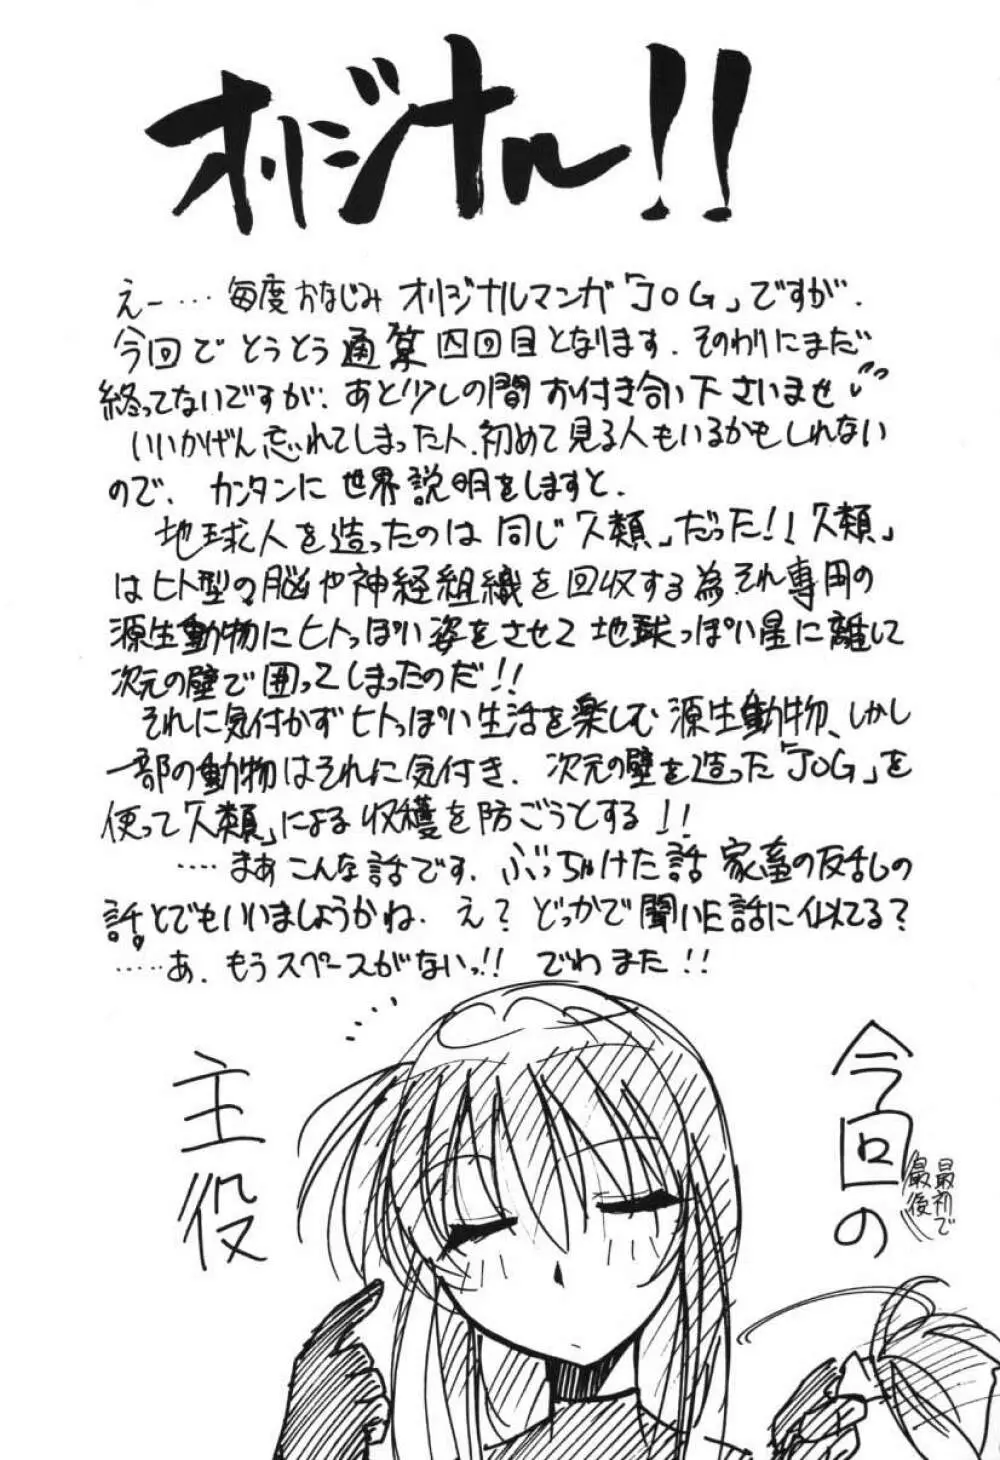 オリジナル!!
えー‥‥毎度おなじみ オリジナルマンガ「JOG」ですが、
今回でとうとう通算四回目となります。そのわりにまだ
終ってないですが、あと少しの間お付き合い下さいませ
いいかげん忘れてしまった人、初めて見る人もいるかもしれない
ので、カンタンに世界説明をしますと、
地球人を造ったのは同じ「人類」だった!!「人類」
はヒト型の脳や神経組織を回収する為それ専用の
源生動物にヒトっぽい姿をさせて地球っぽい星に離して
次元の壁で囲ってしまったのだ!!
それに気付かずヒトっぽい生活を楽しむ源生動物、しかし
一部の動物はそれに気付き、次元の壁を造った「JOG」を
使って「人類」による収穫を防ごうとする!!
‥‥まあこんな話です。ぶっちゃけた話 家畜の反乱の
話とでもいいましょうかね。え?どっかで聞いた話に似てる?
‥‥‥あ、もうスペースがないっ!! でわまた!!
今回の
最初で
最後
主役